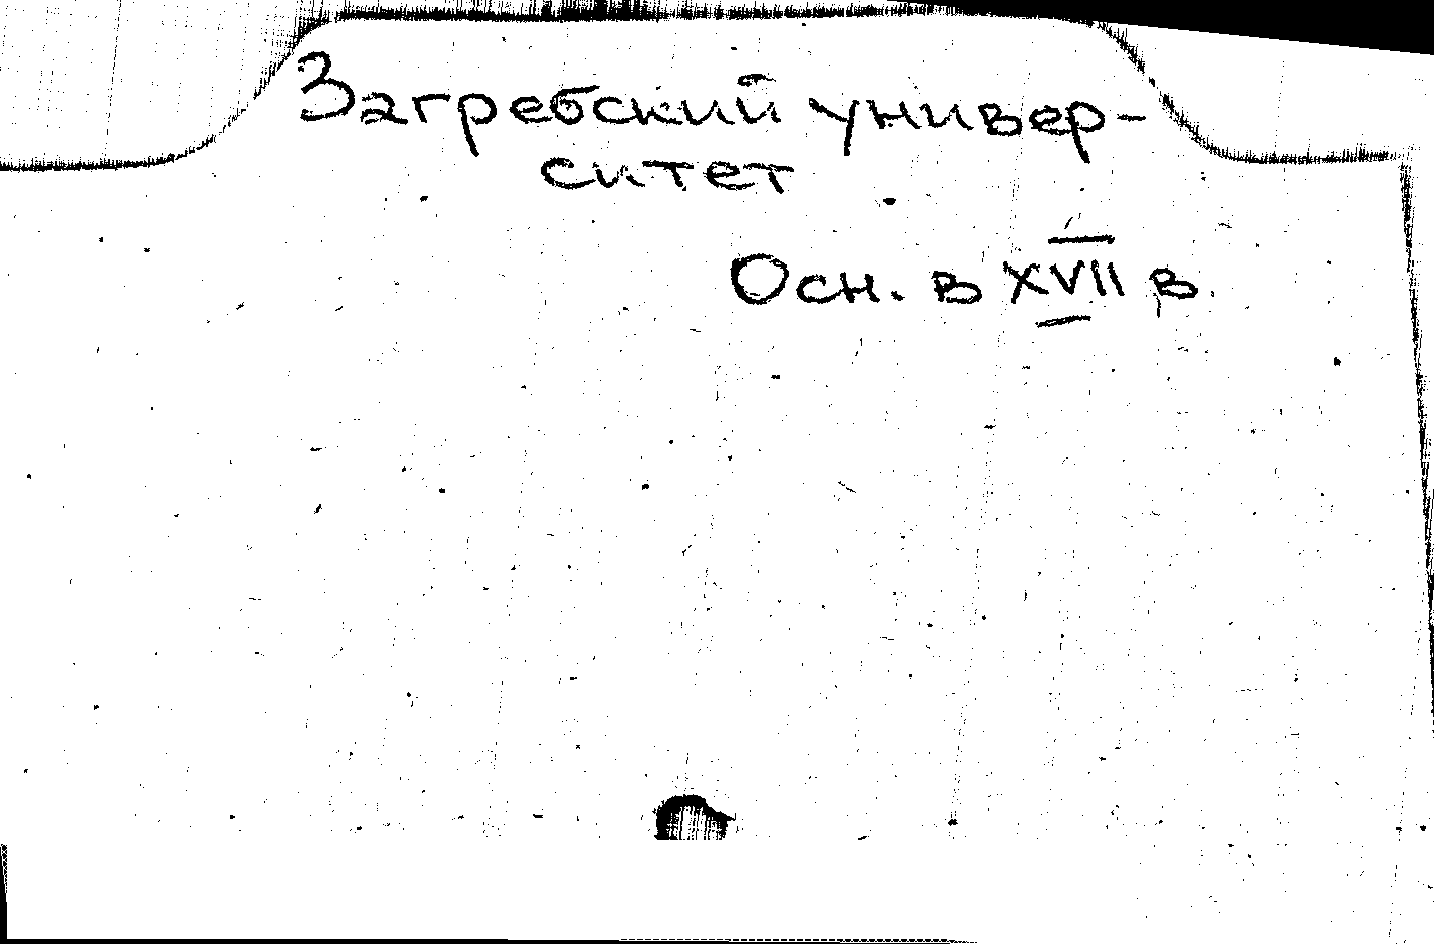 Загребский универ-
ситет
Осн. в XVII в.